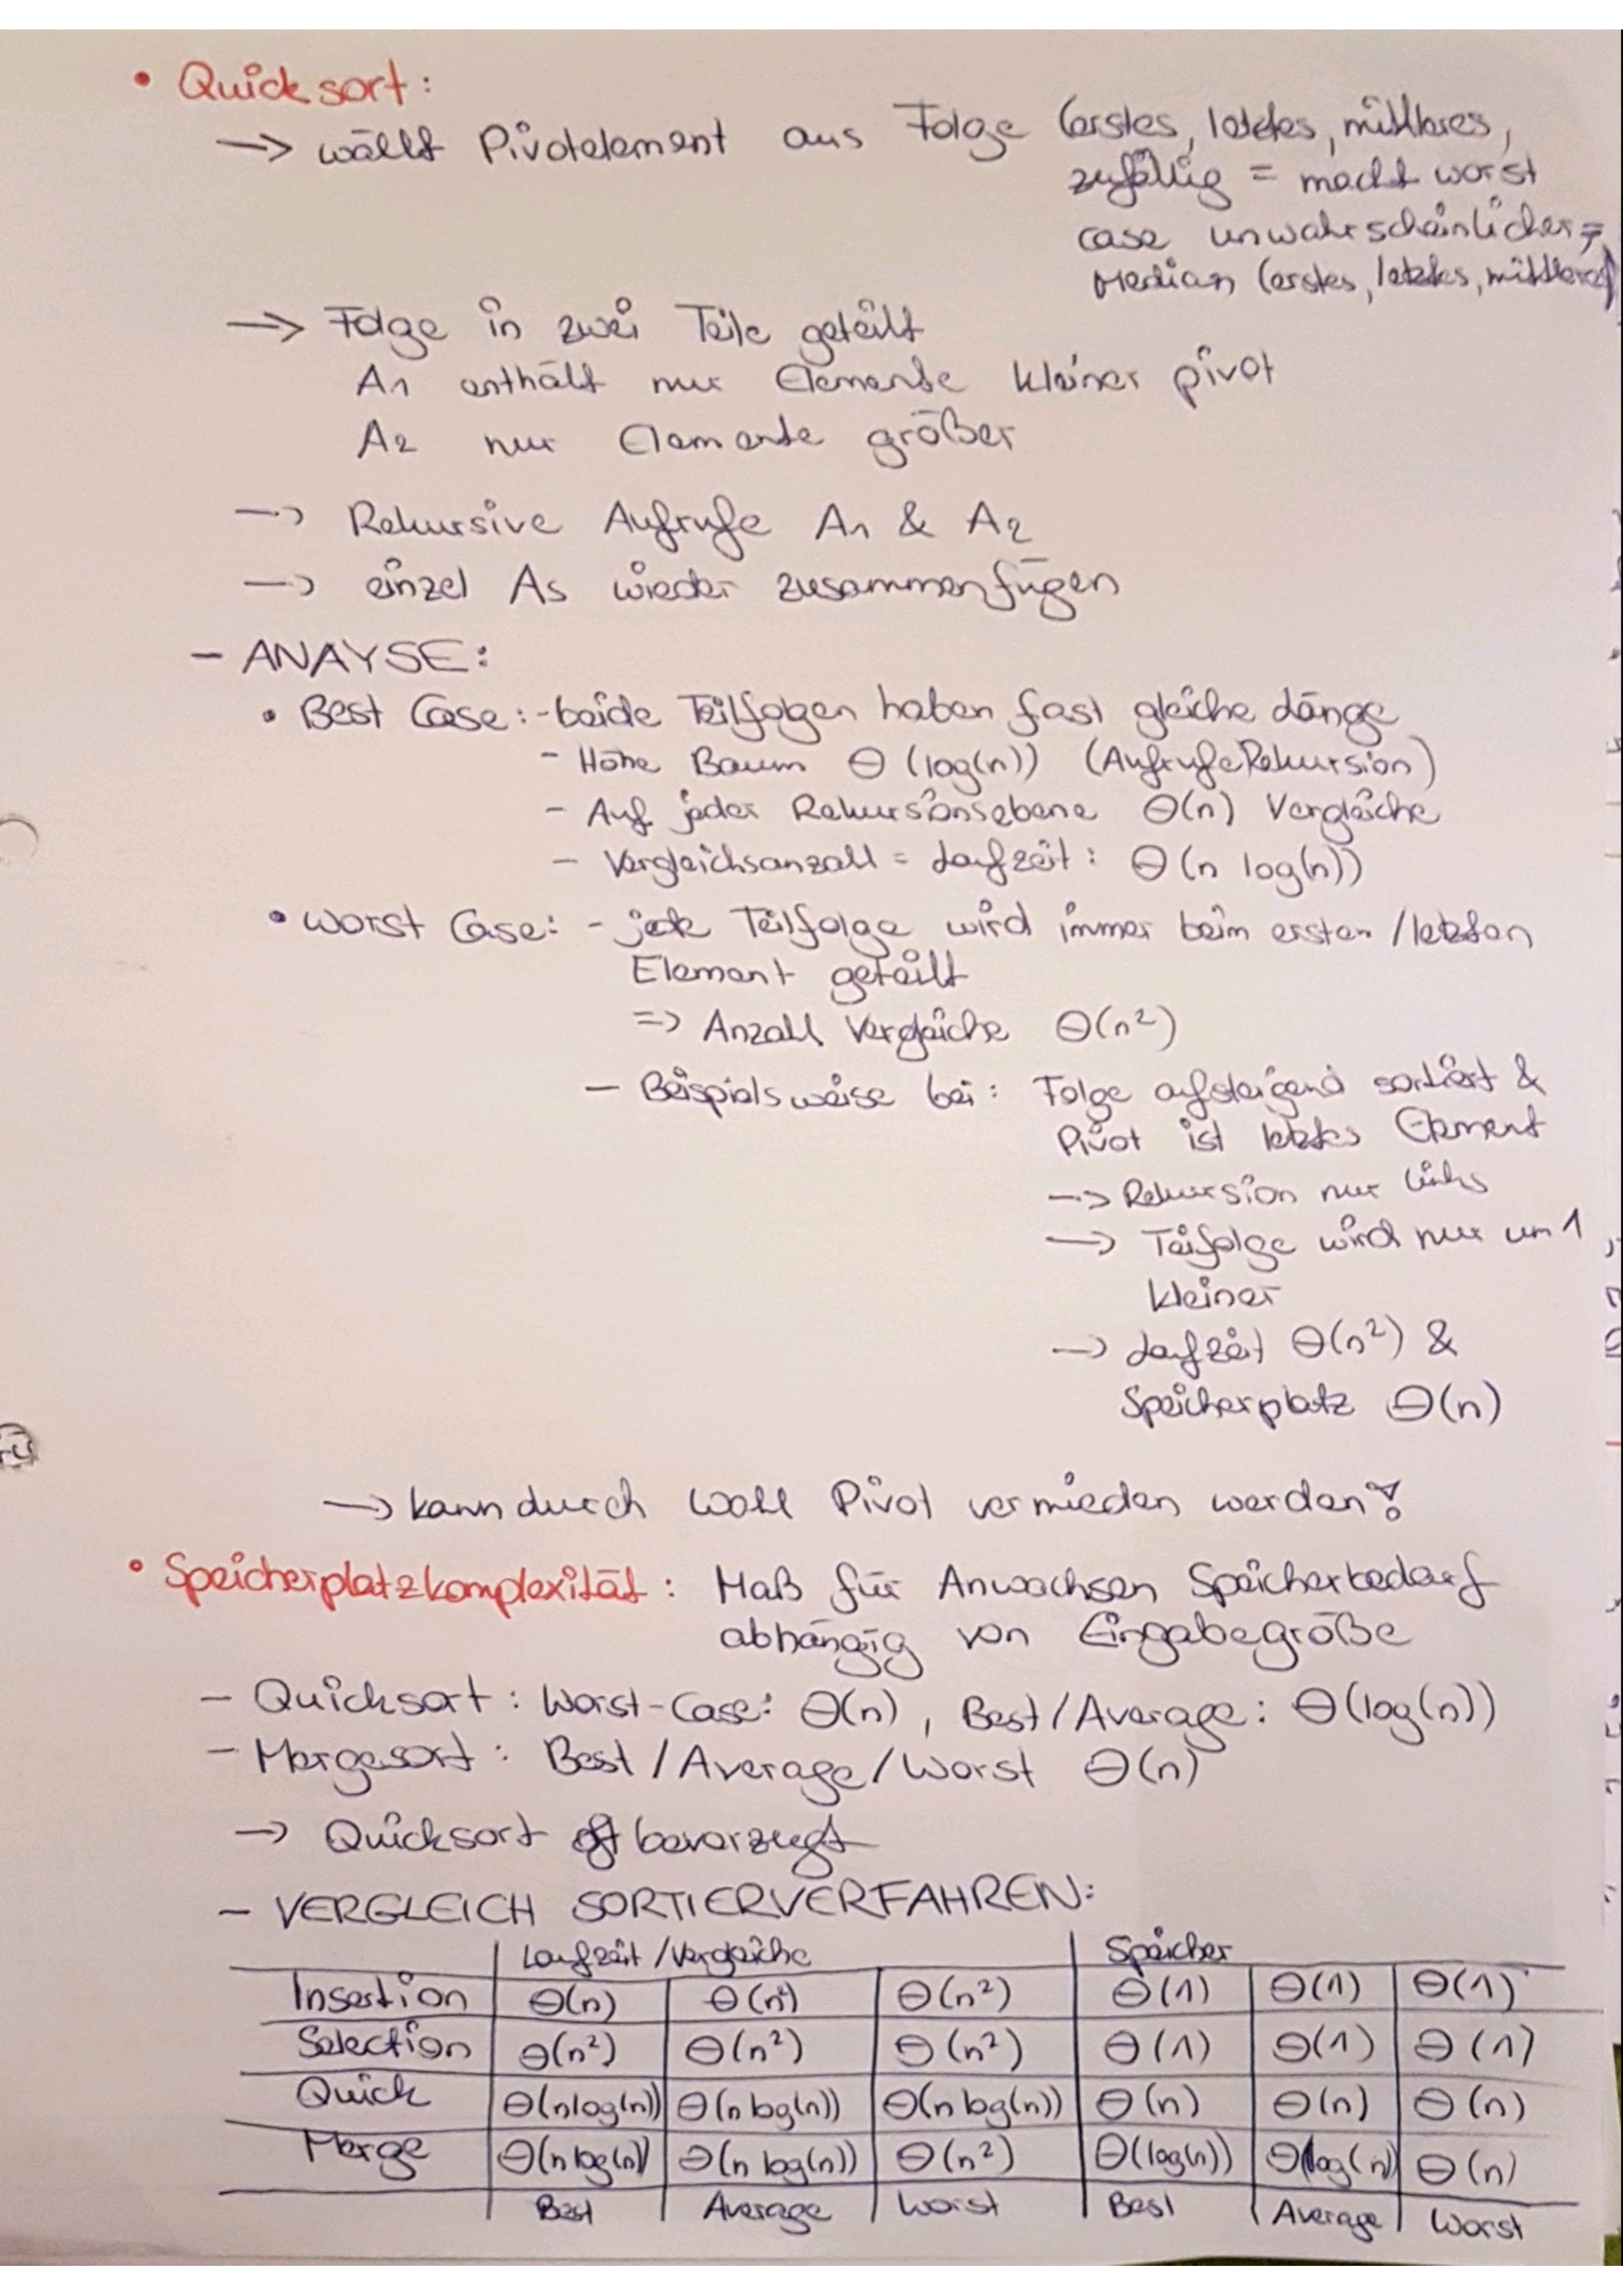 • Quicksort:
→ wählt Pivotelement aus Folge (erstes, letztes, mittleres,
zufällig = macht worst
case unwahrscheinlicher,
Median (erstes, letztes, mittleres)
→ Folge in zwei Teile geteilt
A1 enthält nur Elemente kleiner pivot
A2 nur Elemente größer
→ Rekursive Aufrufe A1 & A2
→ einzel As wieder zusammenfügen
- ANAYSE:
• Best Case: - beide Teilfolgen haben fast gleiche Länge
- Höhe Baum Θ(log(n)) (Aufrufe Rekursion)
- Auf jeder Rekursionsebene Θ(n) Vergleiche
- Vergleichsanzahl = Laufzeit: Θ(n log(n))
• Worst Case: - jede Teilfolge wird immer beim ersten/letzten
Element geteilt
=> Anzahl Vergleiche Θ(n²)
- Beispielsweise bei: Folge aufsteigend sortiert &
Pivot ist letztes Element
→ Rekursion nur links
→ Teifolge wird nur um 1
kleiner
→ Laufzeit Θ(n²) &
Speicherplatz Θ(n)
→ kann durch Wahl Pivot vermieden werden!
• Speicherplatzkomplexität: Maß für Anwachsen Speicherbedarf
abhängig von Eingabegröße
- Quicksort: Worst-Case: Θ(n), Best/Average: Θ(log(n))
- Mergesort: Best/Average/Worst Θ(n)
→ Quicksort oft bevorzugt
- VERGLEICH SORTIERVERFAHREN:
Laufzeit/Vergleiche Speicher
Insertion Θ(n) Θ(n²) Θ(n²) Θ(1) Θ(1) Θ(1)
Selection Θ(n²) Θ(n²) Θ(n²) Θ(1) Θ(1) Θ(1)
Quick Θ(n log(n)) Θ(n log(n)) Θ(n log(n)) Θ(n) Θ(n) Θ(n)
Merge Θ(n log(n)) Θ(n log(n)) Θ(n²) Θ(log(n)) Θ(log(n)) Θ(n)
Best Average Worst Best Average Worst